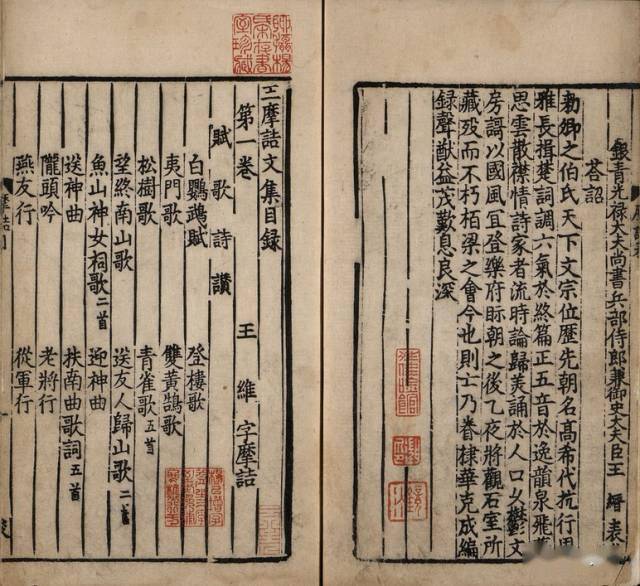 銀青光禄大夫尚書兵部侍郎兼御史大夫臣王 縉表
荅詔
勑卿之伯氏天下文宗位歴先朝名髙希代抗行周
雅長揖楚詞調六氣於終篇正五音於逸韻泉飛藻
思雲散襟情詩家者流時論歸羙誦於人口乆鬱文
房謌以國風宜登樂府旰朝之後乙夜將觀石室所
藏殁而不朽栢梁之會今也則亡乃眷棣華克成編
録聲猷益茂歎息良深
王摩詰文集目録
第一卷 王 維 字摩詰
賦 歌 詩 讃
白鸚鵡賦 登樓歌
夷門歌 雙黃鵠歌
松樹歌 青雀歌五首
望終南山歌 送友人歸山歌二首
魚山神女祠歌二首 迎神曲
送神曲 扶南曲歌詞五首
隴頭吟 老將行
燕友行 從軍行